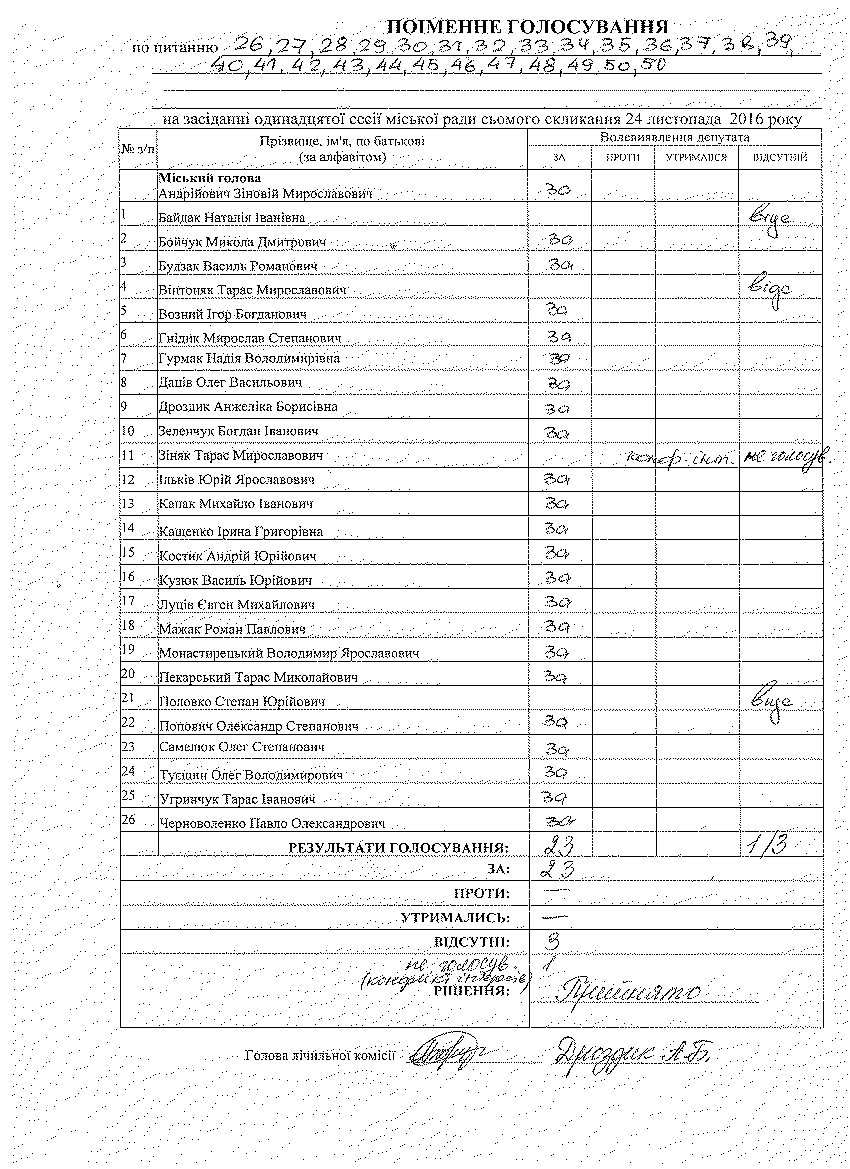 ПОІМЕННЕ ГОЛОСУВАННЯ
по питанню 26, 27, 28, 29, 30, 31, 32, 33, 34, 35, 36, 37, 38, 39,
40, 41, 42, 43, 44, 45, 46, 47, 48, 49, 50, 50
на засіданні одинадцятої сесії міської ради сьомого скликання 24 листопада 2016 року
№ з/п Прізвище, ім'я, по батькові (за алфавітом) Волевиявлення депутата
ЗА ПРОТИ УТРИМАВСЯ ВІДСУТНІЙ
Міський голова
Андрійович Зіновій Мирославович за
1 Байдак Наталія Іванівна відс
2 Бойчук Микола Дмитрович за
3 Будзак Василь Романович за
4 Вінтоняк Тарас Мирославович відс
5 Возний Ігор Богданович за
6 Гнідик Мирослав Степанович за
7 Гурмак Надія Володимирівна за
8 Даців Олег Васильович за
9 Дроздик Анжеліка Борисівна за
10 Зеленчук Богдан Іванович за
11 Зіняк Тарас Мирославович конф. інт. не голосув.
12 Ільків Юрій Ярославович за
13 Капак Михайло Іванович за
14 Кащенко Ірина Григорівна за
15 Костик Андрій Юрійович за
16 Кузюк Василь Юрійович за
17 Луців Євген Михайлович за
18 Мажак Роман Павлович за
19 Монастирецький Володимир Ярославович за
20 Пекарський Тарас Миколайович за
21 Половко Степан Юрійович відс
22 Попович Олександр Степанович за
23 Самелюк Олег Степанович за
24 Туєшин Олег Володимирович за
25 Угринчук Тарас Іванович за
26 Черноволенко Павло Олександрович за
РЕЗУЛЬТАТИ ГОЛОСУВАННЯ: 23 1/3
ЗА: 23
ПРОТИ: —
УТРИМАЛИСЬ: —
ВІДСУТНІ: 3
не голосув. 1
(конфлікт інтересів)
РІШЕННЯ: Прийнято
Голова лічильної комісії Дроздик А.Б.